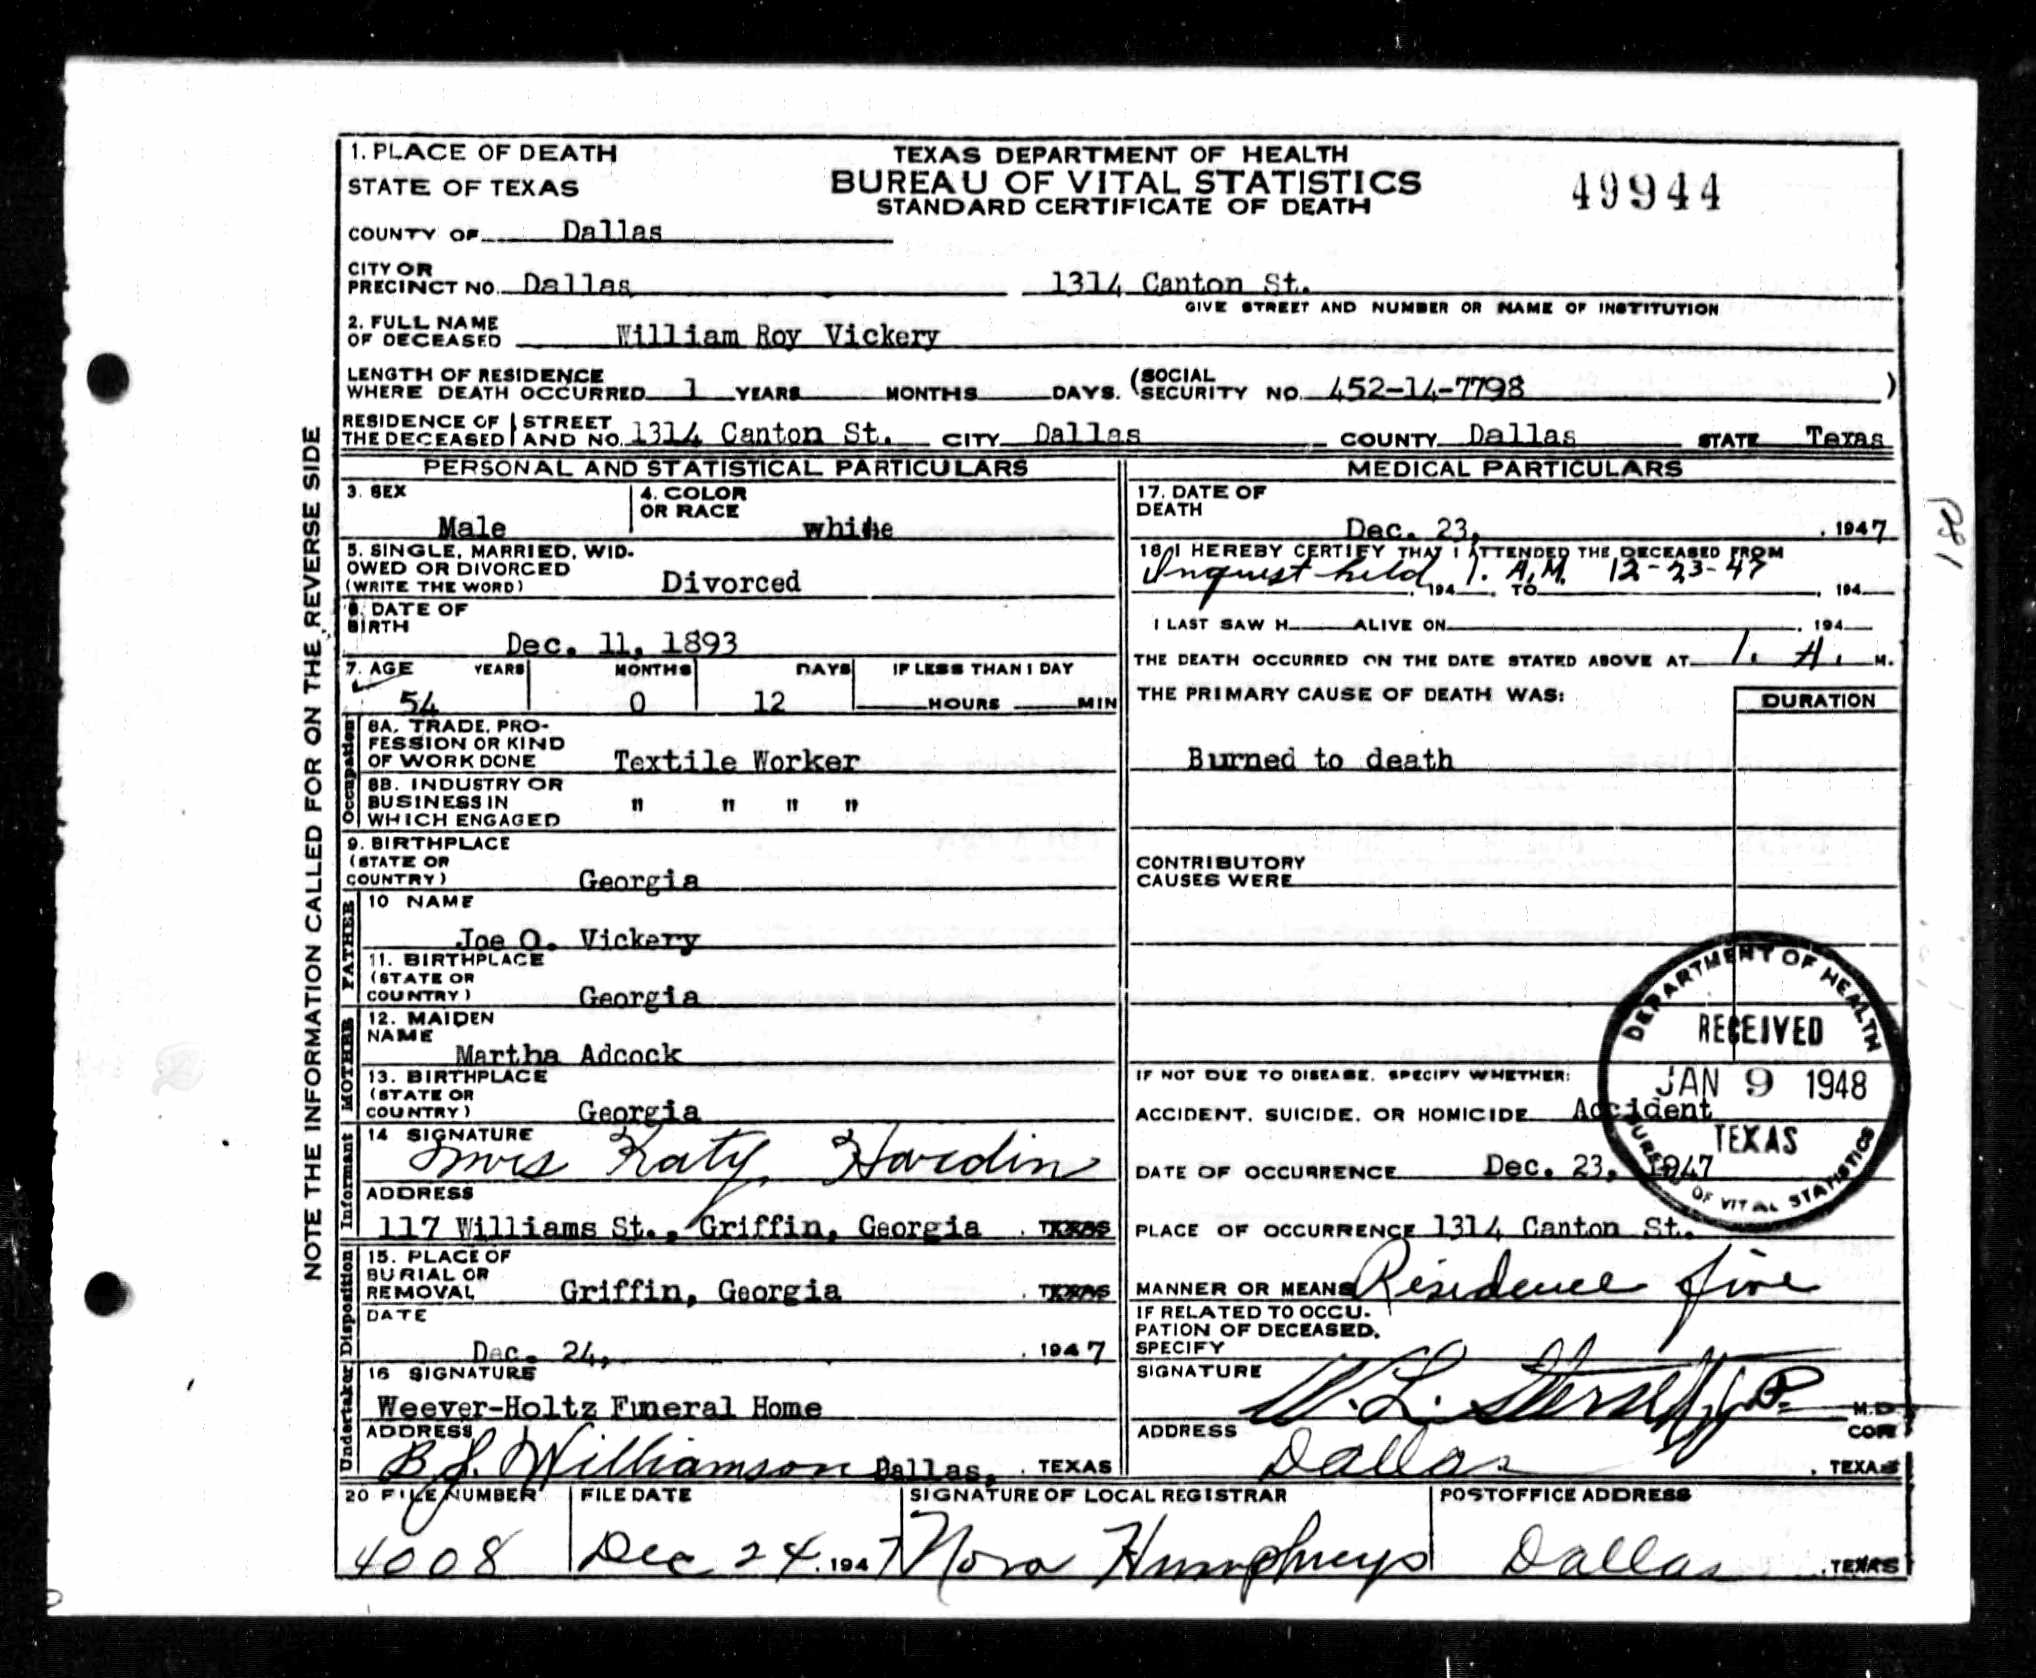 1. PLACE OF DEATH
STATE OF TEXAS
TEXAS DEPARTMENT OF HEALTH
BUREAU OF VITAL STATISTICS
STANDARD CERTIFICATE OF DEATH
49944
COUNTY OF Dallas
CITY OR
PRECINCT NO. Dallas 1314 Canton St.
GIVE STREET AND NUMBER OR NAME OF INSTITUTION
2. FULL NAME
OF DECEASED William Roy Vickery
LENGTH OF RESIDENCE
WHERE DEATH OCCURRED 1 YEARS MONTHS DAYS. (SOCIAL
SECURITY NO. 452-14-7798 )
RESIDENCE OF STREET
THE DECEASED AND NO. 1314 Canton St. CITY Dallas COUNTY Dallas STATE Texas
PERSONAL AND STATISTICAL PARTICULARS
3. SEX
Male
4. COLOR
OR RACE
white
5. SINGLE, MARRIED, WID-
OWED OR DIVORCED
(WRITE THE WORD) Divorced
6. DATE OF
BIRTH
Dec. 11, 1893
7. AGE YEARS MONTHS DAYS IF LESS THAN 1 DAY
54 0 12 HOURS MIN
Occupation
8A. TRADE, PRO-
FESSION OR KIND
OF WORK DONE Textile Worker
8B. INDUSTRY OR
BUSINESS IN " " " "
WHICH ENGAGED
9. BIRTHPLACE
(STATE OR
COUNTRY) Georgia
FATHER
10 NAME
Joe O. Vickery
11. BIRTHPLACE
(STATE OR
COUNTRY) Georgia
MOTHER
12. MAIDEN
NAME
Martha Adcock
13. BIRTHPLACE
(STATE OR
COUNTRY) Georgia
Informant
14 SIGNATURE
Mrs Katy Hardin
ADDRESS
117 Williams St., Griffin, Georgia . TEXAS
Disposition
15. PLACE OF
BURIAL OR
REMOVAL Griffin, Georgia . TEXAS
DATE
Dec. 24, . 1947
Undertaker
16 SIGNATURE
Weever-Holtz Funeral Home
ADDRESS
B.J. Williamson Dallas, . TEXAS
MEDICAL PARTICULARS
17. DATE OF
DEATH
Dec. 23, . 1947
18. I HEREBY CERTIFY THAT I ATTENDED THE DECEASED FROM
Inquest held 1. A.M. 12-23-47
, 194 , TO , 194
I LAST SAW H ALIVE ON , 194
THE DEATH OCCURRED ON THE DATE STATED ABOVE AT 1. A. M.
THE PRIMARY CAUSE OF DEATH WAS: DURATION
Burned to death
CONTRIBUTORY
CAUSES WERE
IF NOT DUE TO DISEASE, SPECIFY WHETHER:
ACCIDENT, SUICIDE, OR HOMICIDE Accident
DATE OF OCCURRENCE Dec. 23, 1947
PLACE OF OCCURRENCE 1314 Canton St.
MANNER OR MEANS Residence fire
IF RELATED TO OCCU-
PATION OF DECEASED,
SPECIFY
SIGNATURE
W. L. Sterrett J.P.
M.D.
COR
ADDRESS
Dallas . TEXAS
DEPARTMENT OF HEALTH
RECEIVED
JAN 9 1948
TEXAS
BUREAU OF VITAL STATISTICS
20 FILE NUMBER FILE DATE SIGNATURE OF LOCAL REGISTRAR POSTOFFICE ADDRESS
4008 Dec 24, 1947 Nora Humphreys Dallas , TEXAS
NOTE THE INFORMATION CALLED FOR ON THE REVERSE SIDE